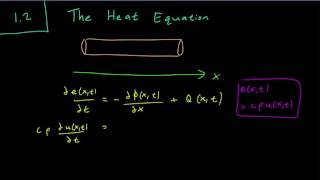 1.2 The Heat Equation
x
∂e(x,t)/∂t = -∂φ(x,t)/∂x + Q(x,t)
e(x,t) = cρu(x,t)
cρ ∂u(x,t)/∂t =